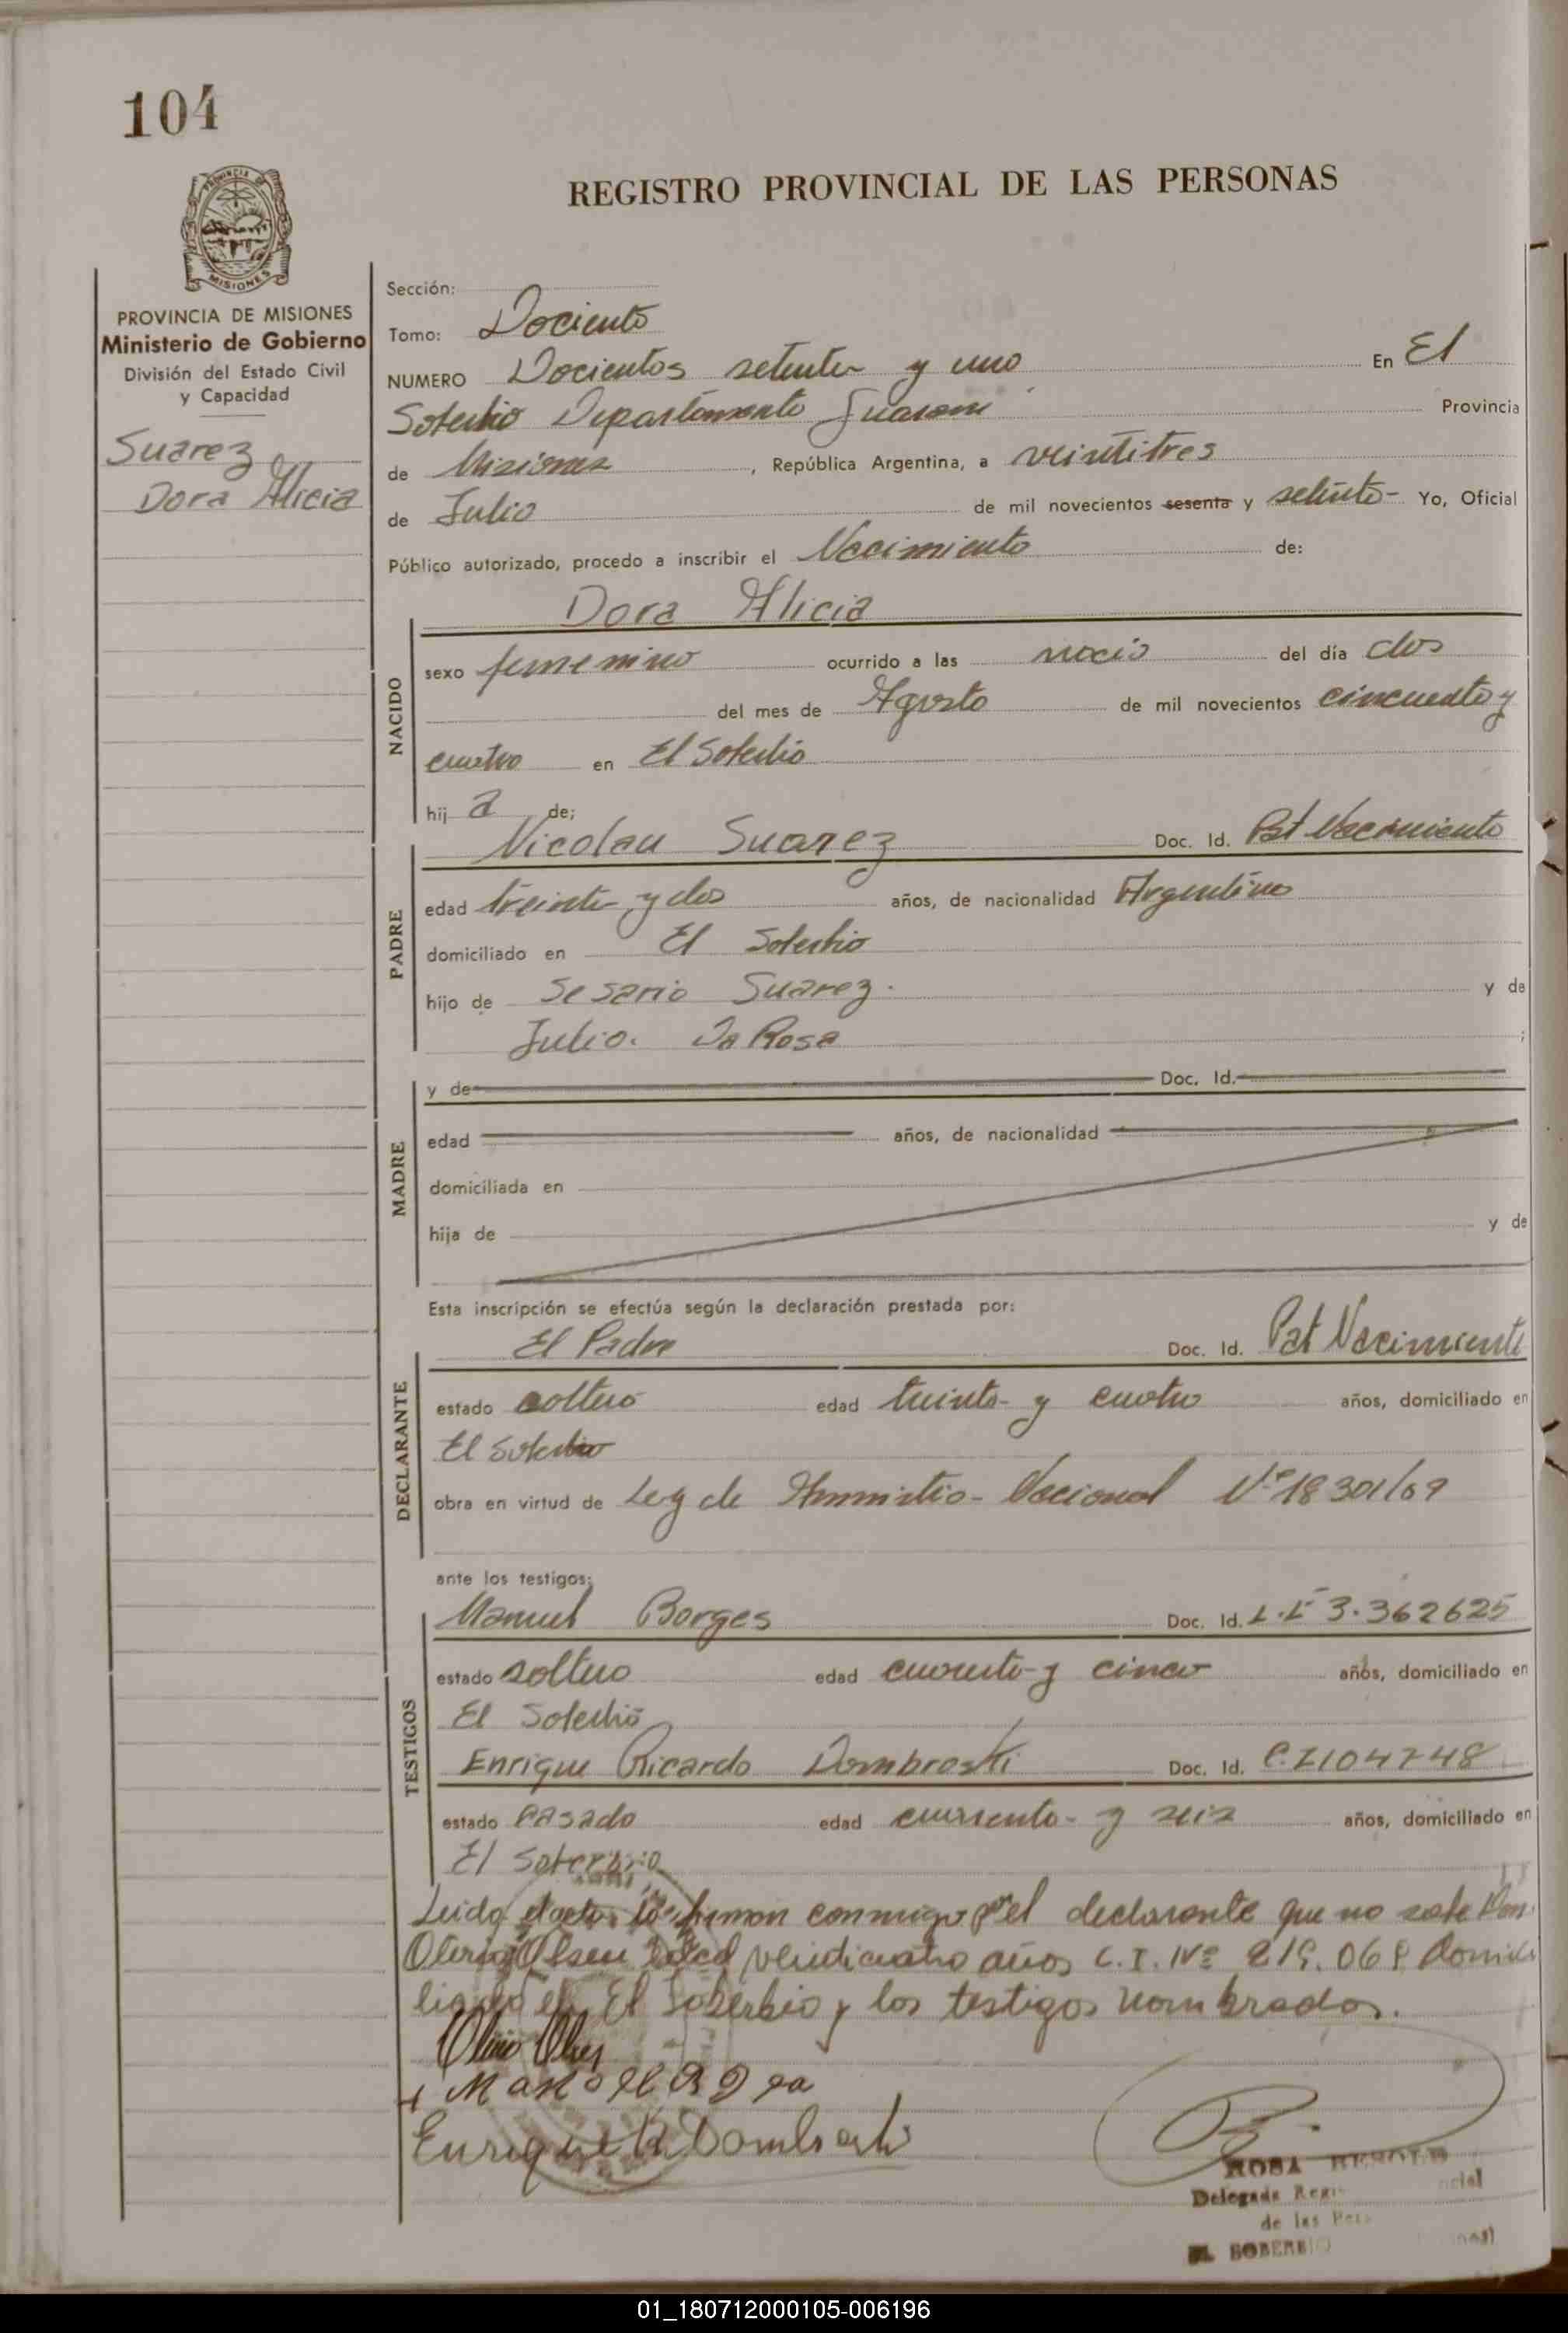 104
PROVINCIA DE
MISIONES
REGISTRO PROVINCIAL DE LAS PERSONAS
PROVINCIA DE MISIONES
Ministerio de Gobierno
División del Estado Civil
y Capacidad
Suarez
Dora Alicia
Sección:
Tomo: Dociento
NUMERO Docientos setenta y uno En El
Soberbio Departamento Guarani Provincia
de Misiones, República Argentina, a veintitres
de Julio de mil novecientos sesenta y setenta- Yo, Oficial
Público autorizado, procedo a inscribir el Nacimiento de:
Dora Alicia
NACIDO
sexo femenino ocurrido a las nació del día dos
del mes de Agosto de mil novecientos cincuenta y
cuatro en El Soberbio
hij a de;
Nicolau Suarez Doc. Id. Pat Nacimiento
PADRE
edad treinta y dos años, de nacionalidad Argentino
domiciliado en El Soberbio
hijo de Sesario Suarez. y de
Julio. Da Rosa ;
MADRE
y de Doc. Id.
edad años, de nacionalidad
domiciliada en
hija de y de
Esta inscripción se efectúa según la declaración prestada por:
El Padre Doc. Id. Pat Nacimiento
DECLARANTE
estado soltero edad treinta- y cuatro años, domiciliado en
El Soberbio
obra en virtud de Ley de Amnistia- Nacional Nº 18301/69
ante los testigos:
Manuel Borges Doc. Id. L.E 3.362625
TESTIGOS
estado soltero edad cuarenta- y cinco años, domiciliado en
El Soberbio
Enrique Ricardo Dombroski Doc. Id. C.I104748
estado casado edad cuarenta- y seis años, domiciliado en
El Soberbio
Leida el acta la firman conmigo por el declarante que no sabe Don
Olsen edad veindicuatro años C.I. Nº 219.068 domici
liado en El Soberbio y los testigos nombrados.
Enrique R Dombroski
ROSA
Delegada
de las
EL SOBERBIO
01_180712000105-006196